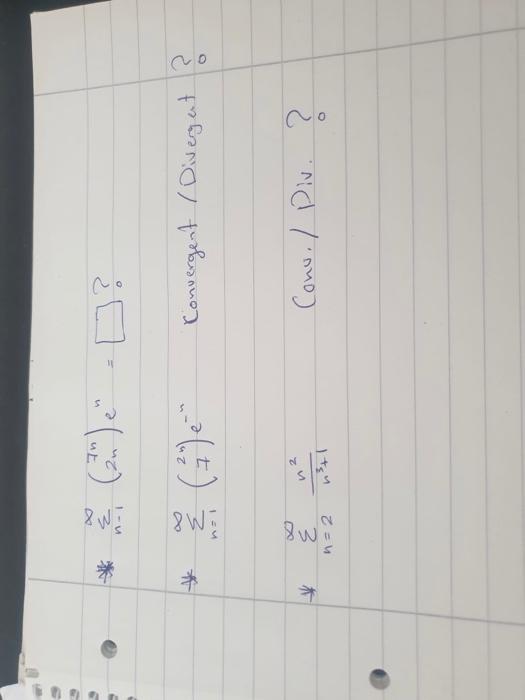 * ∞ Σ n-1 (7n 2n) eⁿ = □ ?
* ∞ Σ n=1 (2n 7) e⁻ⁿ Convergent / Divergent ?
* ∞ Σ n=2 n² / n³+1 Conv. / Div. ?